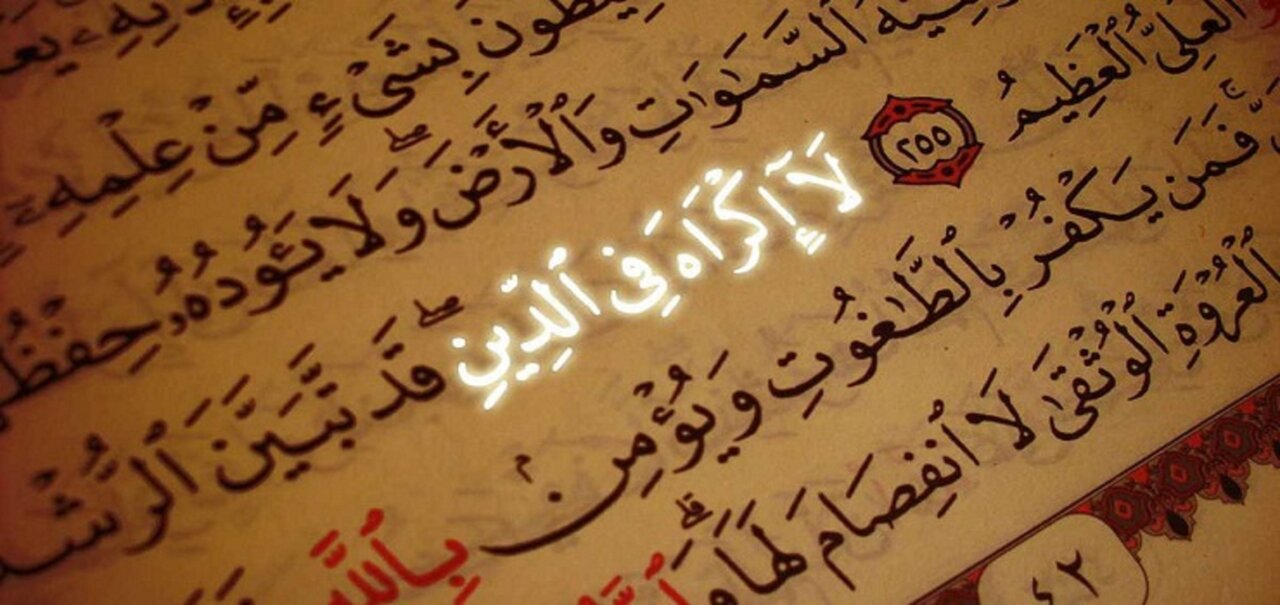 يطُونَ بِشَىْءٍ مِّنْ عِلْمِهِۦٓ
ٱلسَّمَٰوَٰتِ وَٱلْأَرْضَ ۖ وَلَا يَـُٔودُهُۥ حِفْظُ
ٱلْعَلِىُّ ٱلْعَظِيمُ ٢٥٥ لَآ إِكْرَاهَ فِى ٱلدِّينِ ۖ قَد تَّبَيَّنَ ٱلرُّشْ
فَمَن يَكْفُرْ بِٱلطَّٰغُوتِ وَيُؤْمِنۢ بِٱللَّهِ
ٱلْعُرْوَةِ ٱلْوُثْقَىٰ لَا ٱنفِصَامَ لَهَا ۗ وَ
٤٢